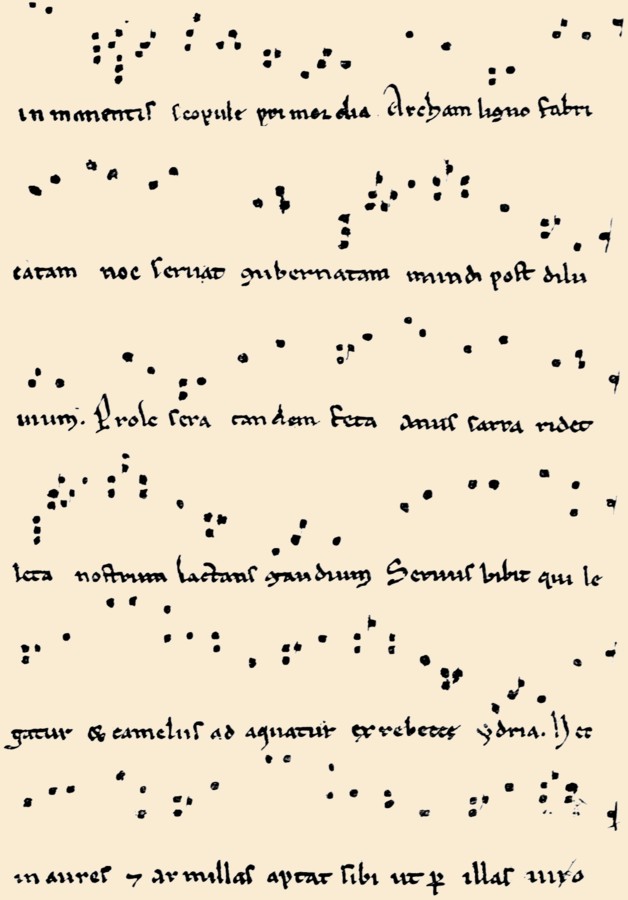 in manentis scopule pri mor dia Archam ligno fabri
catam noe seruat gubernatam mundi post dilu
uium. Prole sera tandem feta anus sarra ridet
leta nostrum lactans gaudium Seruus bibit qui le
gatur & camelus ad aquatur ex rebecce ydria. Hec
in aures ⁊ armillas aptat sibi ut ꝑ illas uiro